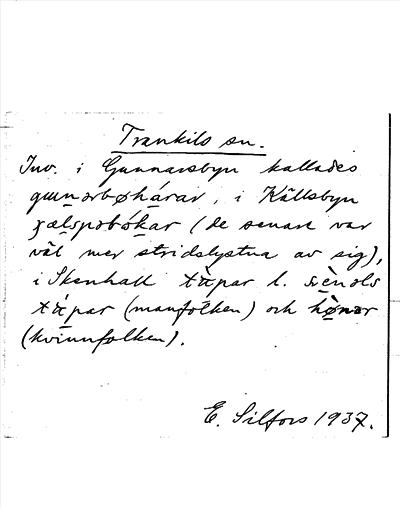 Trankils sn.
Inv. i Gunnarsbyn kallades
gunnarbøhárar, i Källsbyn
jælspobókar (de senare var
väl mer stridslystna av sig),
i Skenhall tùpar l. sènols
tùpar (manfolken) och hø̀nor
(kvinnfolken).
E. Silfors 1937.